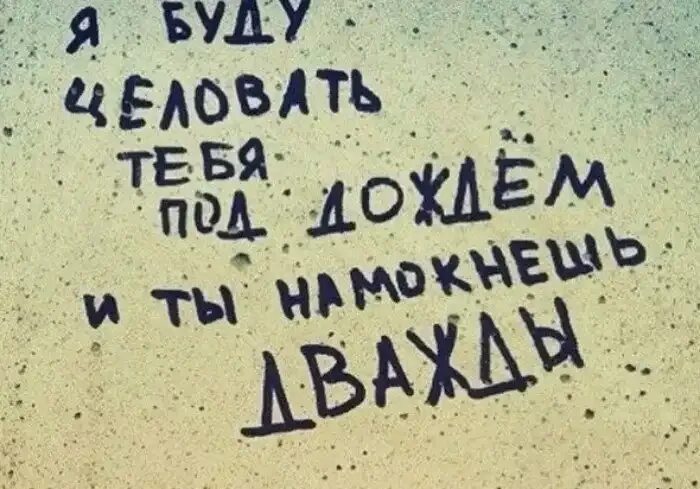 Я БУДУ
ЦЕЛОВАТЬ
ТЕБЯ
ПОД ДОЖДЁМ
И ТЫ НАМОКНЕШЬ
ДВАЖДЫ